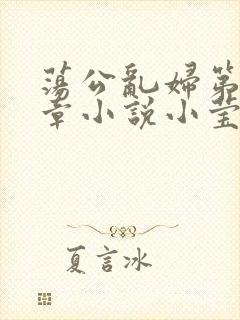 蕩公亂婦第
章小說小瑩
夏言冰